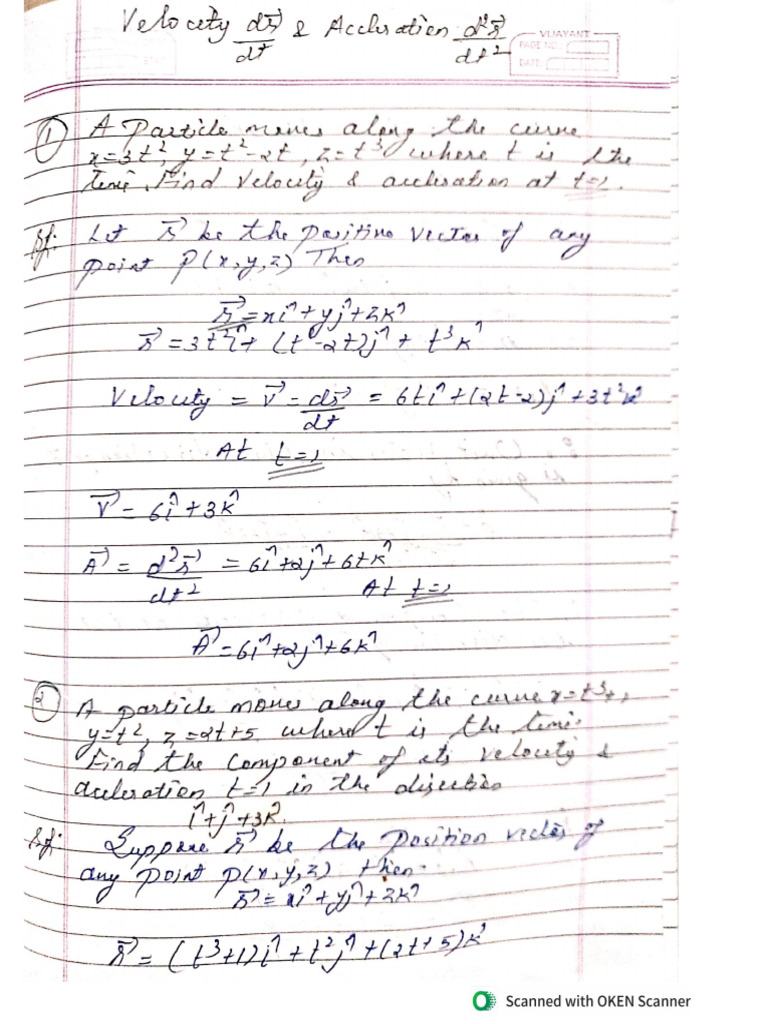 Velocity dr⃗/dt & Accleration d²r⃗/dt²
VIJAYANT
PAGE NO.:
DATE:
① A Particle moves along the curve
x=3t², y=t²-2t, z=t³ where t is the
time. Find velocity & accleration at t=1.
Sol: Let r⃗ be the positive vector of any
point P(x,y,z) Then
r⃗ = xî+yĵ+zk̂
r⃗ = 3t²î+ (t²-2t)ĵ + t³k̂
Velocity = v⃗ = dr⃗/dt = 6tî+(2t-2)ĵ+3t²k̂
At t=1
v⃗ = 6î+3k̂
A⃗ = d²r⃗/dt² = 6î+2ĵ+6tk̂
At t=1
A⃗ = 6î+2ĵ+6k̂
② A particle moves along the curve x=t³+1,
y=t², z=2t+5 where t is the time.
Find the component of its velocity &
accleration t=1 in the direction
î+ĵ+3k̂.
Sol: Suppose r⃗ be the Position vector of
any point P(x,y,z) then.
r⃗ = xî+yĵ+zk̂
r⃗ = (t³+1)î+t²ĵ+(2t+5)k̂
Scanned with OKEN Scanner